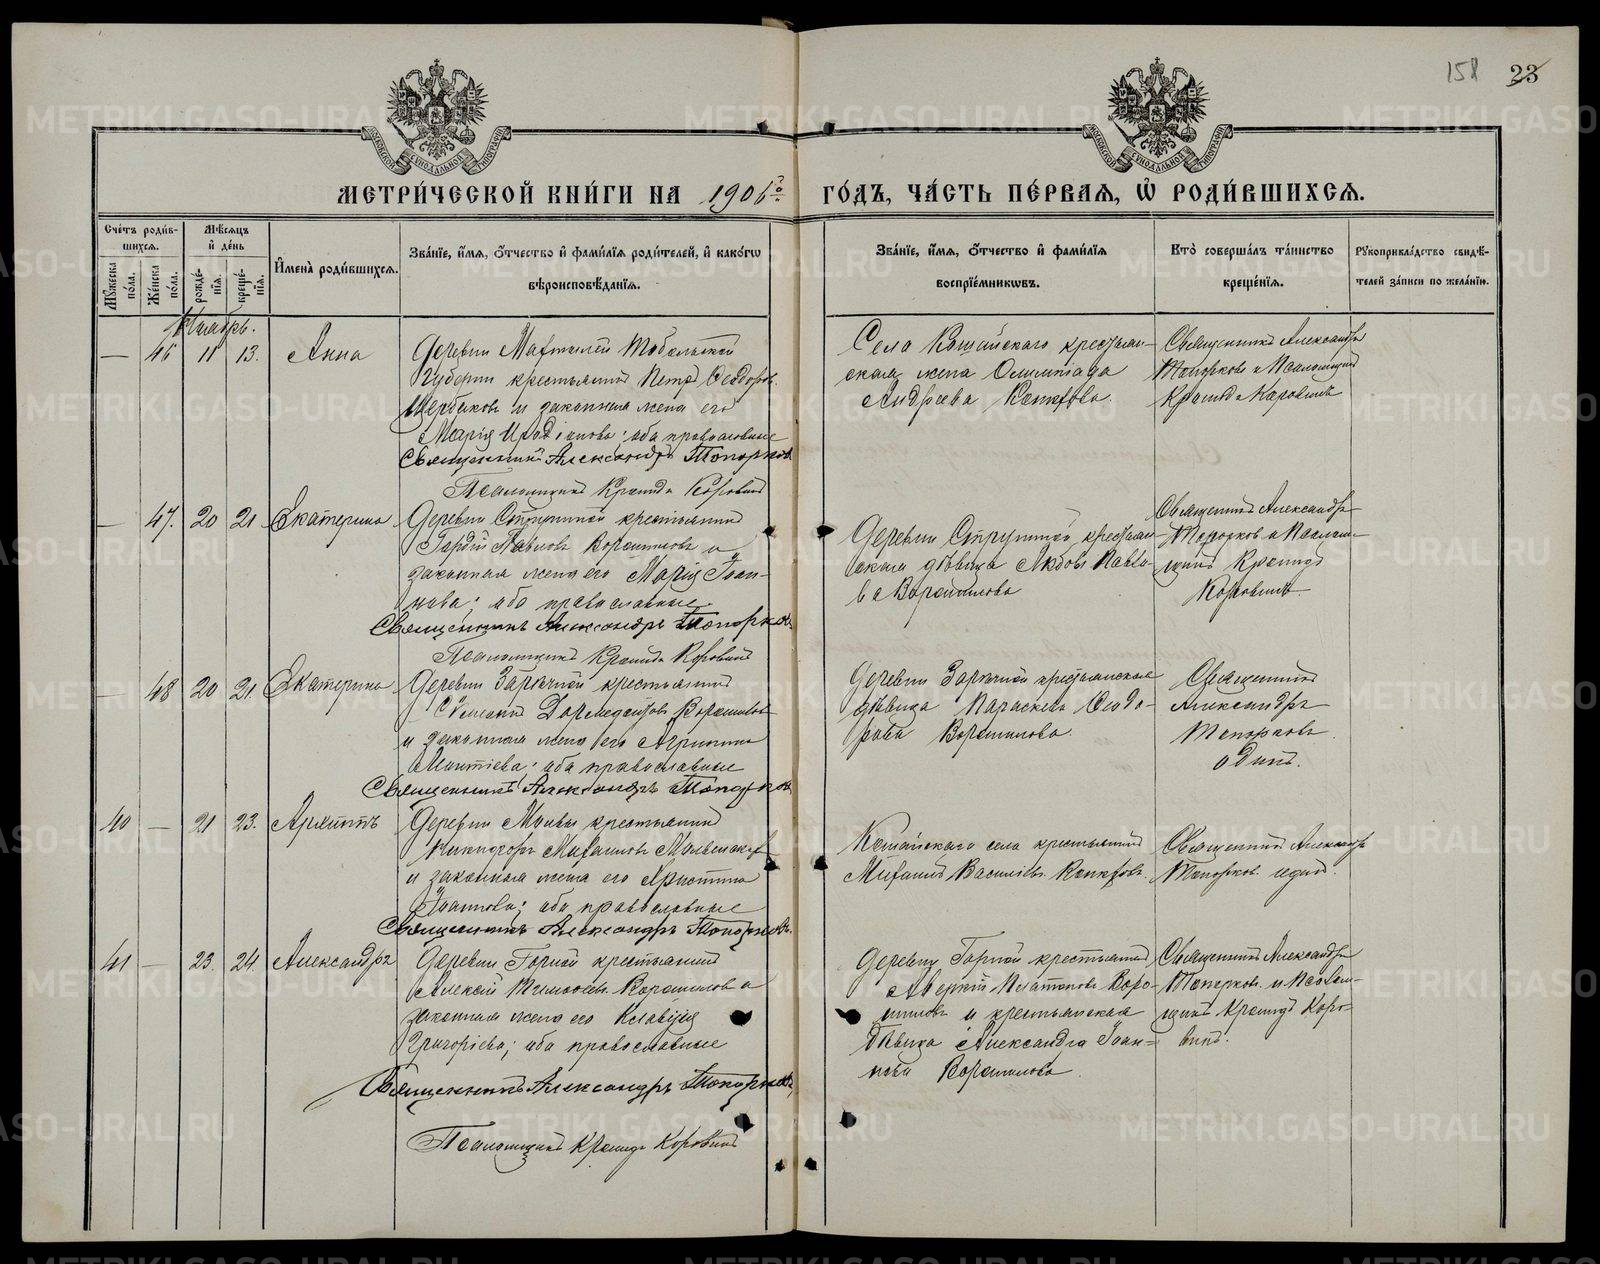 158 23
МЕТРИ́ЧЕСКОЙ КНИ́ГИ НА 1906 го ГО́ДЪ, ЧА́СТЬ ПЕ́РВАЯ, Ѿ РОДИ́ВШИХСЯ.
Сче́тъ роди́в-
шихся.
Му́жеска по́ла.
Же́нска по́ла.
Мѣ́сяцъ
и҆ де́нь
рожде́-
нїя.
креще́-
нїя.
И҆мена̀ роди́вшихся.
Зва́нїе, и҆́мя, ѻ҆́тчество и҆ фами́лїя роди́телей, и҆ како́гѡ
вѣроисповѣ́данїя.
Зва́нїе, и҆́мя, ѻ҆́тчество и҆ фами́лїя
воспрїе́мникѡвъ.
Кто̀ соверша́лъ та́инство
креще́нїя.
Рꙋкоприкла́дство свидѣ́-
телей за́писи по жела́нїю.
— 46 11 13. Анна
Деревни Махтылей Тобольской
Губернии крестьянинъ Петръ Ѳеодоровъ
Щербаковъ и законная жена его
Марія Иродіонова; оба православные
Священникъ Александръ Топорковъ
Псаломщикъ Кронидъ Коровинъ
Села Кошайскаго крестьян-
ская жена Олимпіада
Андреева
Священникъ Александръ
Топорковъ и Псаломщикъ
Кронидъ Коровинъ
— 47. 20 21 Екатерина
Деревни Ступиной крестьянинъ
Павловъ Ворошиловъ и
законная жена его Марія Іоан-
нова; оба православные
Священникъ Александръ Топорковъ
Псаломщикъ Кронидъ Коровинъ
Деревни крестьян-
ская дѣвица Любовь Павло-
ва Ворошилова
Священникъ Александръ
Топорковъ и Псалом-
щикъ Кронидъ
Коровинъ
— 48 20 21. Екатерина
Деревни Заречной крестьянинъ
Дормедонтовъ Ворошиловъ
и законная жена его Агрипина
оба православные
Священникъ Александръ Топорковъ
Деревни Заречной крестьянская
дѣвица Параскева Ѳеодо-
рова Ворошилова.
Священникъ
Александръ
Топорковъ
одинъ.
40 — 21 23.
Деревни крестьянинъ
Никифоръ Михаиловъ
и законная жена его Христина
Іоаннова; оба православные
Священникъ Александръ Топорковъ.
Кошайскаго села крестьянинъ
Михаилъ Василіевъ
Священникъ Александръ
Топорковъ одинъ.
41 — 23. 24. Александръ
Деревни Горной крестьянинъ
Алексій Тимоѳеевъ Ворошиловъ и
законная жена его Клавдія
Григоріева; оба православные
Священникъ Александръ Топорковъ
Псаломщикъ Кронидъ Коровинъ
Деревни Горной крестьянинъ
Аверкій Платоновъ Воро-
шиловъ и крестьянская
дѣвица Александра Іоан-
нова Ворошилова.
Священникъ Александръ
Топорковъ и Псалом-
щикъ Кронидъ Коро-
винъ.